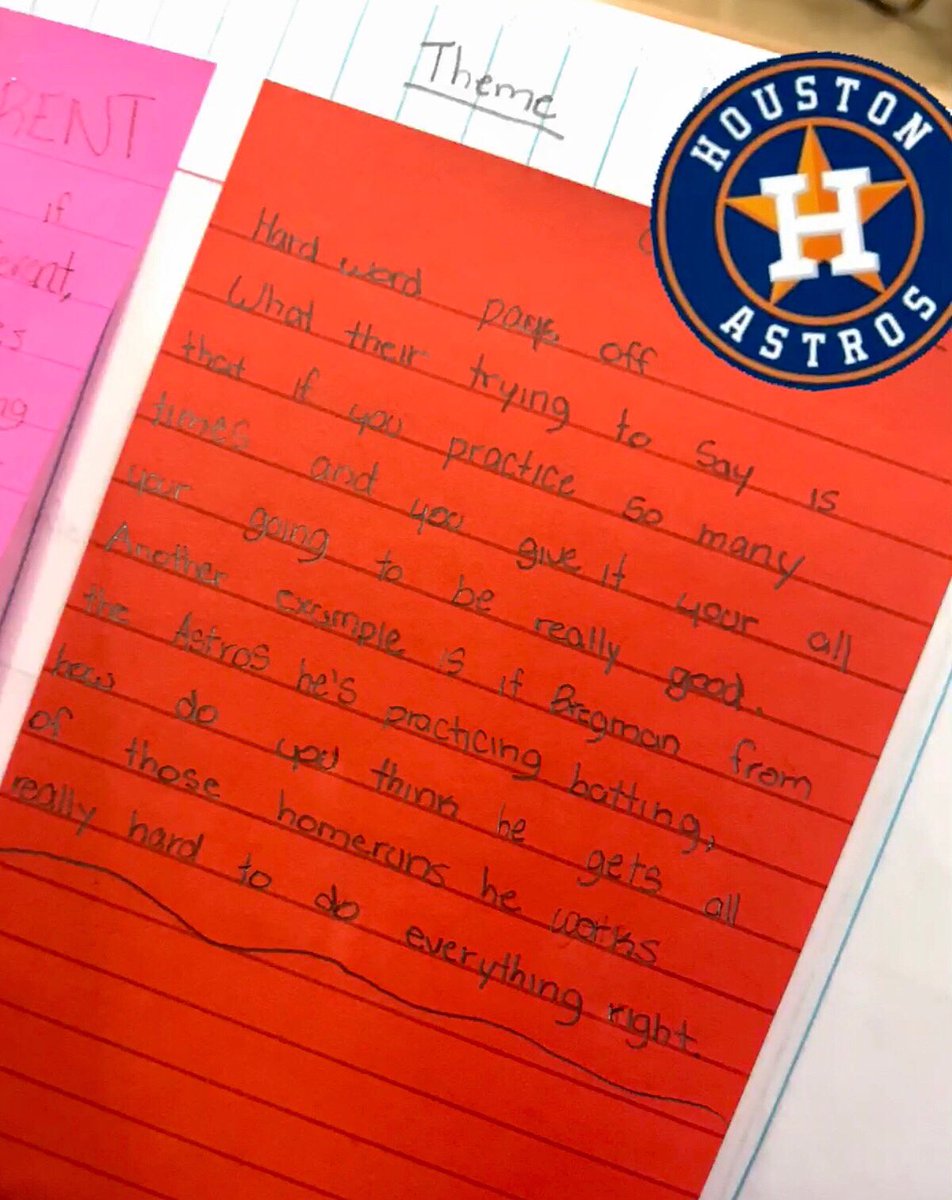 Theme
RENT
if
erent,
es
ng
HOUSTON
ASTROS
H
Hard word pays off
What their trying to say is
that if you practice so many
times and you give it your all
your going to be really good.
Another example is if Bregman from
the Astros he's practicing batting,
how do you think he gets all
of those homeruns he works
really hard to do everything right.